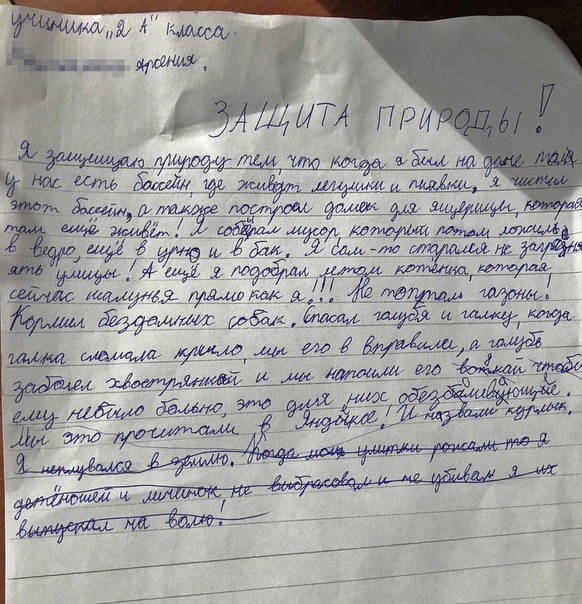 ученика "2 А" класса.
Арсения.
ЗАЩИТА ПРИРОДЫ!
Я защищаю природу тем, что когда я был на даче там
у нас есть бассейн, где живут лягушки и пиявки, я чистил
этот бассейн, а также построил домик для ящерицы, которая
там ещё живёт! Я собирал мусор который потом ложил
в ведро, ещё в урну и в бак. Я сам-то старался не загрязн
ять улицы! А ещё я подобрал летом котёнка, которая
сейчас шалунья прямо как я!!! Не топтал газоны!
Кормил бездомных собак. Спасал голубя и галку, когда
галка сломала крыло, мы его в вправили, а голубь
заболел хвострянкой и мы напоили его водкай чтобы
ему небыло больно, это для них обезбаливающие.
Мы это прочитали в Яндыксе! И назвали курлык.
Я неплувался в землю. Когда моя улитки рожали то я
детёношей и личинок не выбрасовал и не убивал я их
выпускал на волю!